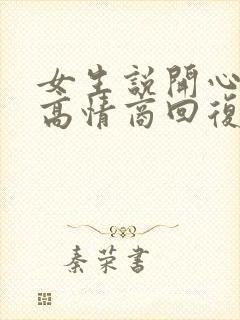 女生說開心
高情商回復
秦荣書